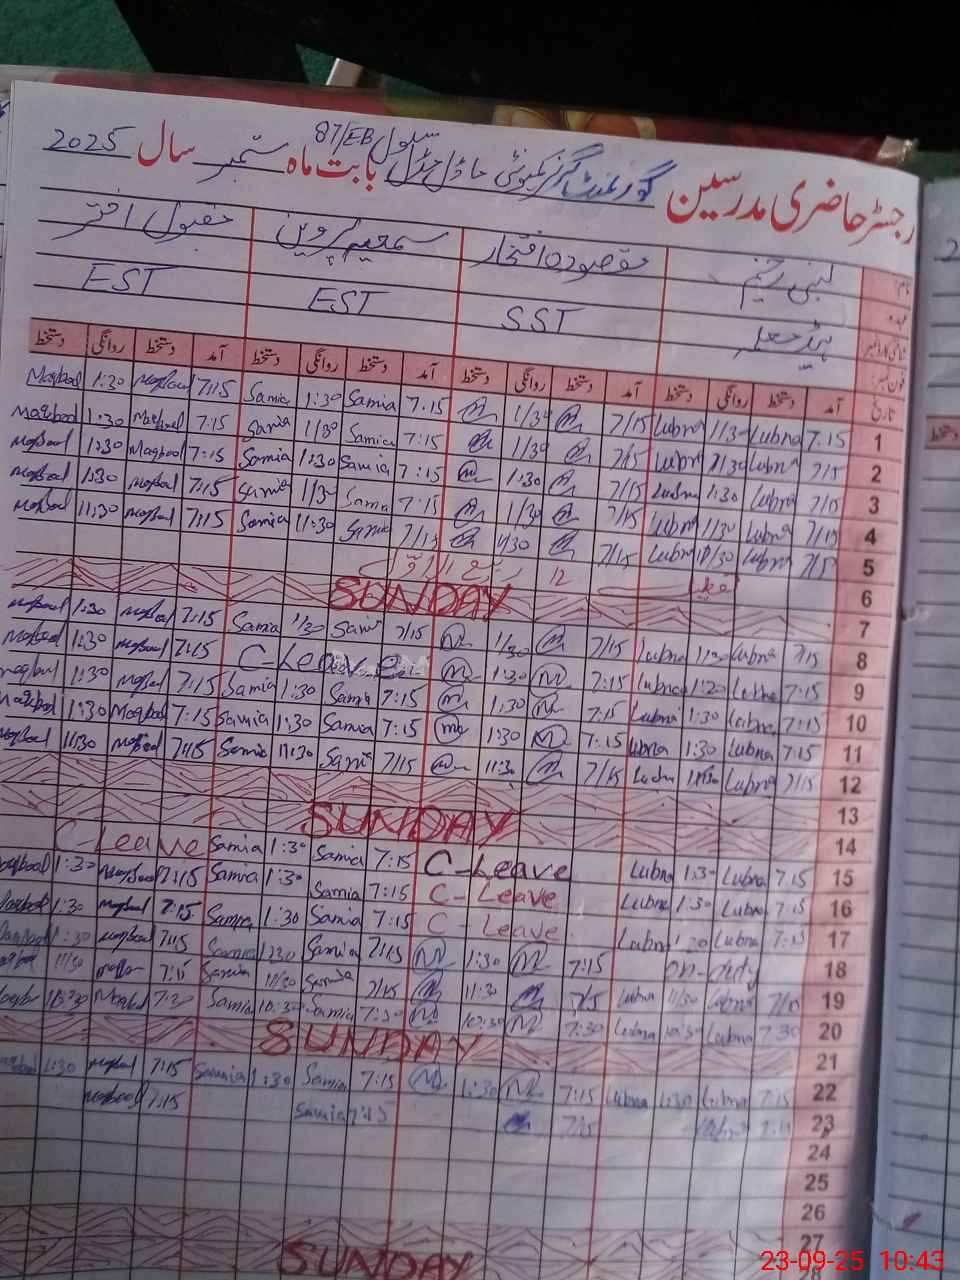 رجسٹر حاضری مدرسین گورنمنٹ گرلز کمیونٹی ماڈل سکول 87/EB بابت ماہ ستمبر سال 2025
نام لبنیٰ مقصودہ افتخار سمعیہ پروین مقبول اختر
عہدہ SST EST EST
تاریخ آمد دستخط روانگی دستخط آمد دستخط روانگی دستخط آمد دستخط روانگی دستخط آمد دستخط روانگی دستخط
1 7:15 Lubna 1/30 Lubna 7/15 1/30 7:15 Samia 1:30 Samia 7:15 Maqbool 1:30 Maqbool
2 7/15 Lubna 1/30 Lubna 7/15 1/30 7:15 Samia 1/30 Samia 7:15 Maqbool 1:30 Maqbool
3 7/15 Lubna 1:30 Lubna 7/15 1:30 7:15 Samia 1:30 Samia 7:15 Maqbool 1:30 Maqbool
4 7/15 Lubna 1/30 Lubna 7/15 1/30 7:15 Samia 1/30 Samia 7:15 Maqbool 1:30 Maqbool
5 7/15 Lubna 11/30 Lubna 7/15 7/15 Samia 11:30 Samia 7:15 Maqbool 11:30 Maqbool
6 12 ربیع الاول
7 SUNDAY
8 7/15 Lubna 1:30 Lubna 7/15 1/30 7/15 Samia 1/30 Samia 7:15 Maqbool 1:30 Maqbool
9 7:15 Lubna 1:30 Lubna 7:15 1:30 C-Leave 7:15 Maqbool 1:30 Maqbool
10 7:15 Lubna 1:30 Lubna 7:15 1:30 7:15 Samia 1:30 Samia 7:15 Maqbool 1:30 Maqbool
11 7:15 Lubna 1:30 Lubna 7:15 1:30 7:15 Samia 1:30 Samia 7:15 Maqbool 1:30 Maqbool
12 7/15 Lubna 11:30 Lubna 7/15 11:30 7/15 Samia 11:30 Samia 7:15 Maqbool 11:30 Maqbool
13
14 SUNDAY
15 7:15 Lubna 1:30 Lubna C-Leave 7:15 Samia 1:30 Samia C-Leave
16 7:15 Lubna 1:30 Lubna C-Leave 7:15 Samia 1:30 Samia 7:15 Maqbool 1:30 Maqbool
17 7:15 Lubna Lubna C-Leave 7:15 Samia 1:30 Samia 7:15 Maqbool 1:30 Maqbool
18 on-duty 7:15 1:30 7:15 Samia 1:30 Samia 7:15 Maqbool 1:30 Maqbool
19 7/15 Lubna 11/30 Lubna 7/15 11:30 7/15 Samia 11/30 Samia 7:15 11/30
20 7:30 Lubna 10:30 Lubna 7:30 10:30 7:30 Samia 10:30 Samia 7:30 Maqbool 10:30 Maqbool
21 SUNDAY
22 7:15 Lubna 1:30 Lubna 7:15 1:30 7:15 Samia 1:30 Samia 7:15 Maqbool 1:30
23 7:15 Samia 7:15 Maqbool
24
25
26
27
SUNDAY
23-09-25 10:43